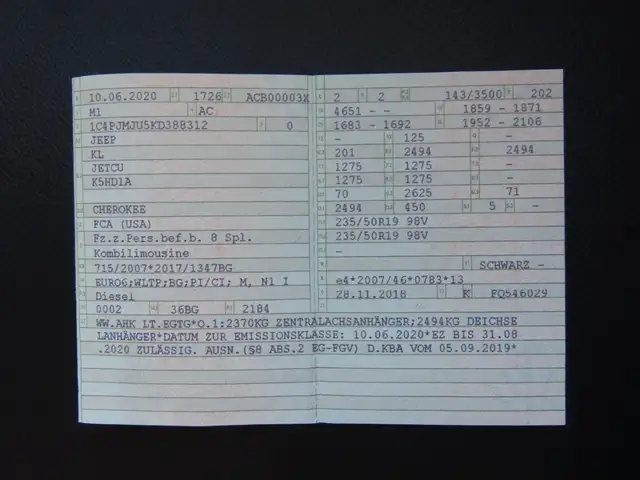 10.06.2020 1726 ACB00003X
M1 AC
1C4PJMJU5KD388312 0
JEEP
KL
JETCU
K5HD1A
CHEROKEE
FCA (USA)
Fz.z.Pers.bef.b. 8 Spl.
Kombilimousine
715/2007*2017/1347BG
EURO6;WLTP;BG;PI/CI; M, N1 I
Diesel
0002 36BG 2184
2 2 143/3500 202
4651 - - 1859 - 1871
1683 - 1692 1952 - 2106
- 125 -
201 2494 2494
1275 1275 -
1275 1275 -
70 2625 71
2494 450 5 -
235/50R19 98V
235/50R19 98V
-
SCHWARZ -
e4*2007/46*0783*13
28.11.2018 K FQ546029
WW.AHK LT.EGTG*O.1:2370KG ZENTRALACHSANHÄNGER;2494KG DEICHSE
LANHÄNGER*DATUM ZUR EMISSIONSKLASSE: 10.06.2020*EZ BIS 31.08
.2020 ZULÄSSIG. AUSN.(§8 ABS.2 EG-FGV) D.KBA VOM 05.09.2019*